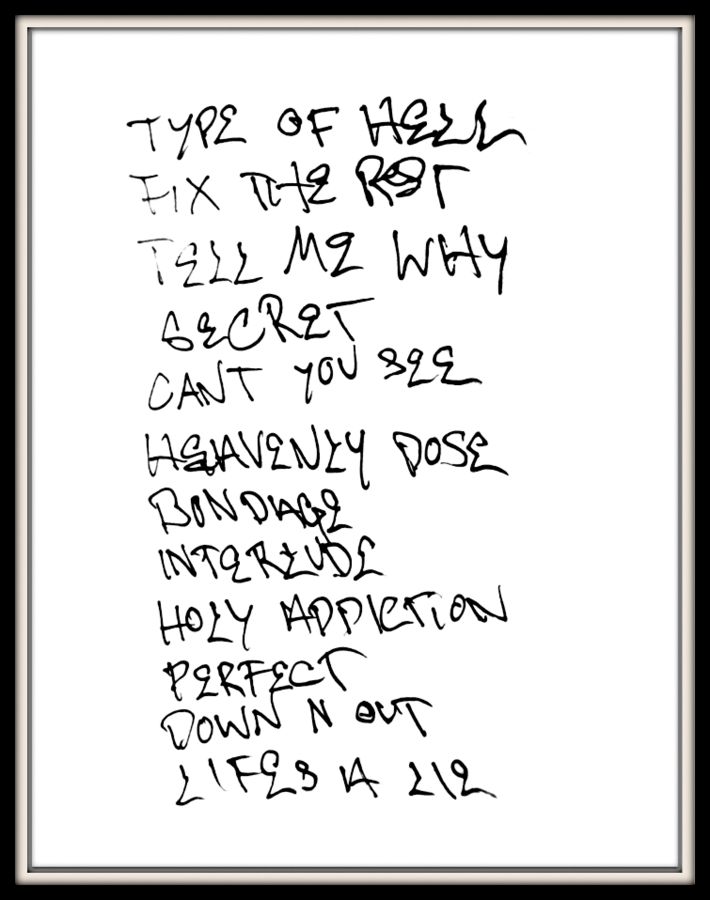 TYPE OF HELL
FIX THE REST
TELL ME WHY
SECRET
CANT YOU SEE
HEAVENLY DOSE
BONDAGE
INTERLUDE
HOLY ADDICTION
PERFECT
DOWN N OUT
LIFES A LIE